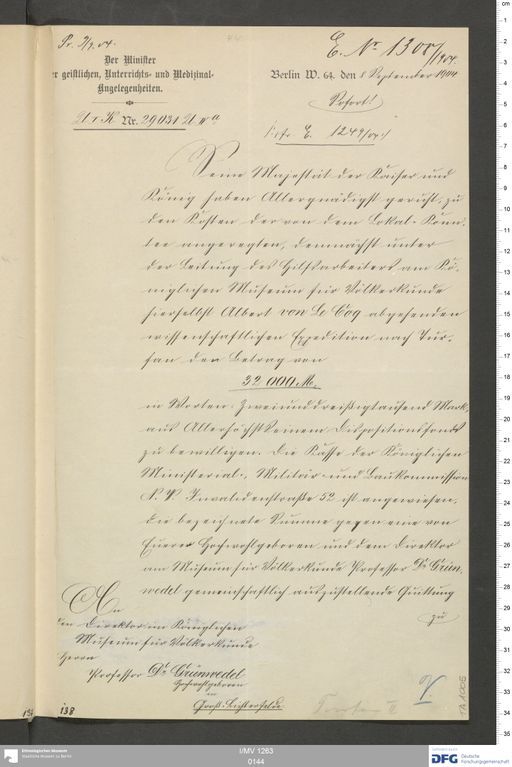 Pr. 9/9.04.
E. No 1308/1904.
Der Minister
der geistlichen, Unterrichts- und Medizinal-
Angelegenheiten.
Berlin W. 64. den 8 September 1904
U I K Nr. 29031
Sofort!
E. 1249/04
Seine Majestät der Kaiser und
König haben Allergnädigst geruht, zu
den Kosten der von dem Lokal-Komi-
tee angeregten, demnächst unter
der Leitung des Hilfsarbeiters am Kö-
niglichen Museum für Völkerkunde
hierselbst Albert von Le Coq abgehenden
wissenschaftlichen Expedition nach Tur-
fan den Betrag von
32 000 M.
in Worten: Zweiunddreißigtausend Mark,
aus Allerhöchstihrem Dispositionsfonds
zu bewilligen. Die Kasse der Königlichen
Ministerial-, Militär- und Baukommission
N. W. Invalidenstraße 52 ist angewiesen,
die bezeichnete Summe gegen eine von
Euerer Hochwohlgeboren und dem Direktor
am Museum für Völkerkunde Professor Dr Grün-
wedel gemeinschaftlich auszustellende Quittung
zu
An
den Direktor im Königlichen
Museum für Völkerkunde
Herrn
Professor Dr Grünwedel
Hochwohlgeboren
in
Groß-Lichterfelde
138
TA 1005
Ethnologisches Museum
Staatliche Museen zu Berlin
I/MV 1263
0144
DFG Deutsche
Forschungsgemeinschaft